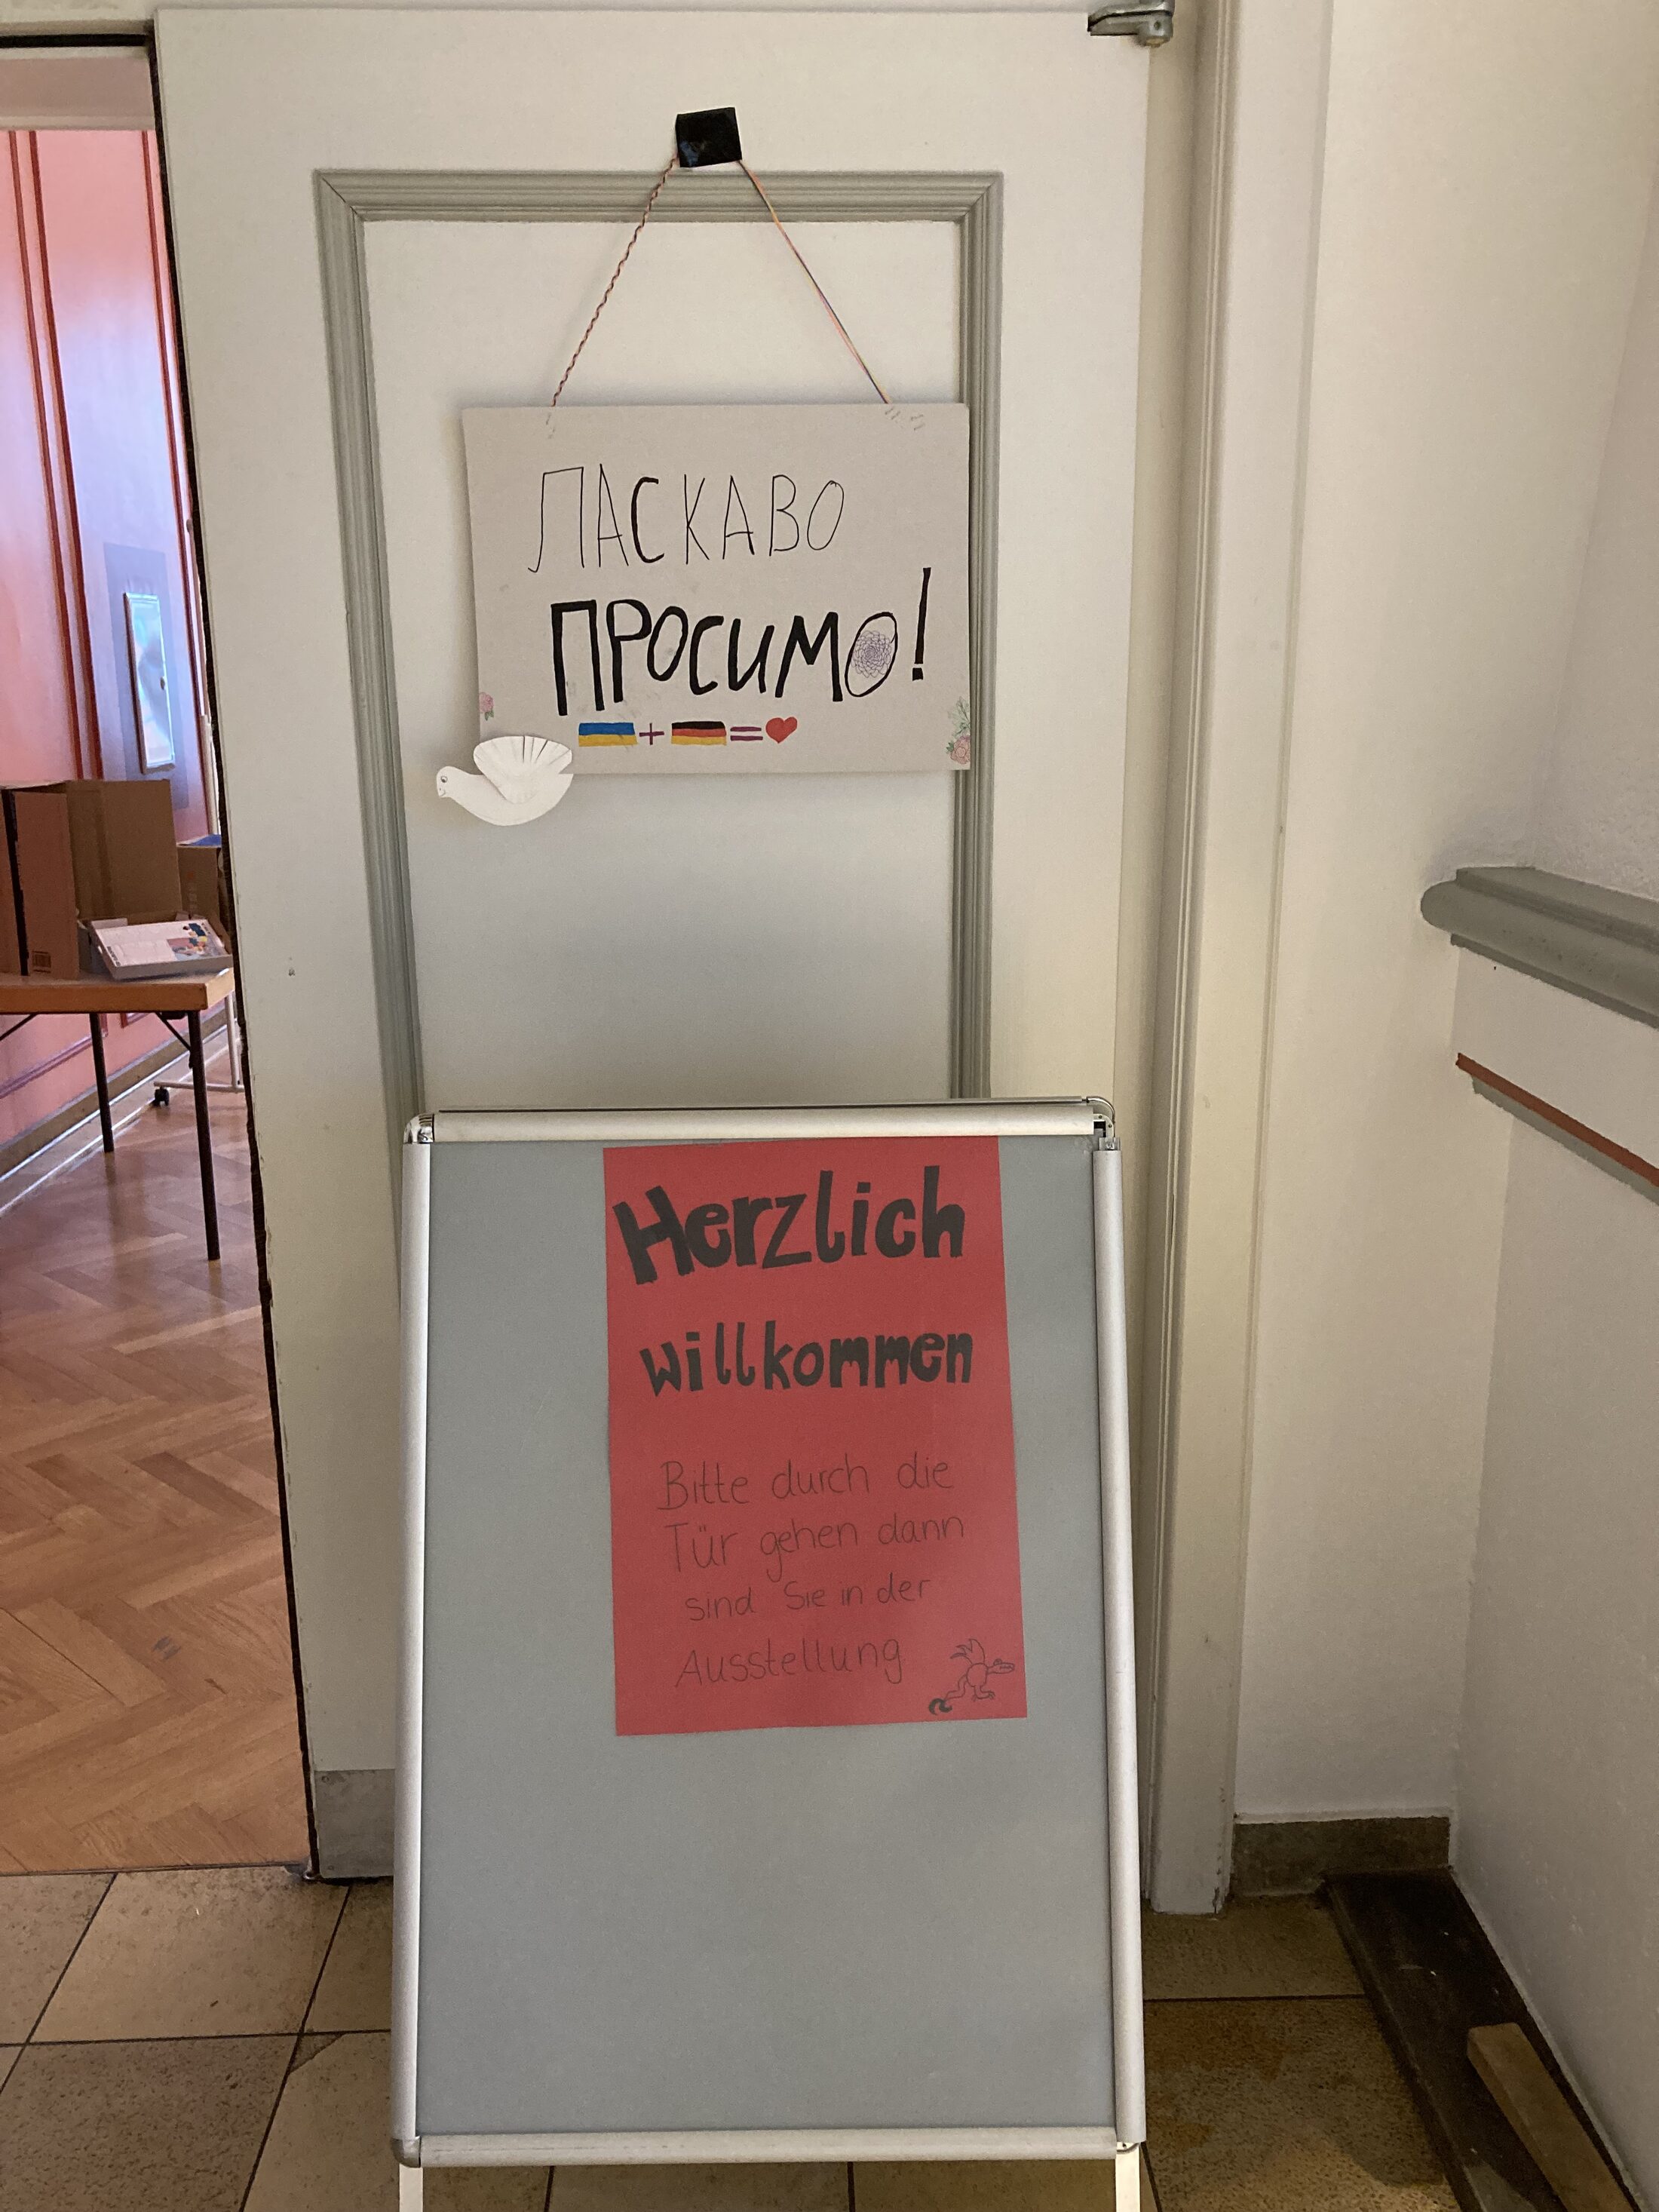 ЛАСКАВО
ПРОСИМО!
+ =
Herzlich
willkommen
Bitte durch die
Tür gehen dann
sind Sie in der
Ausstellung